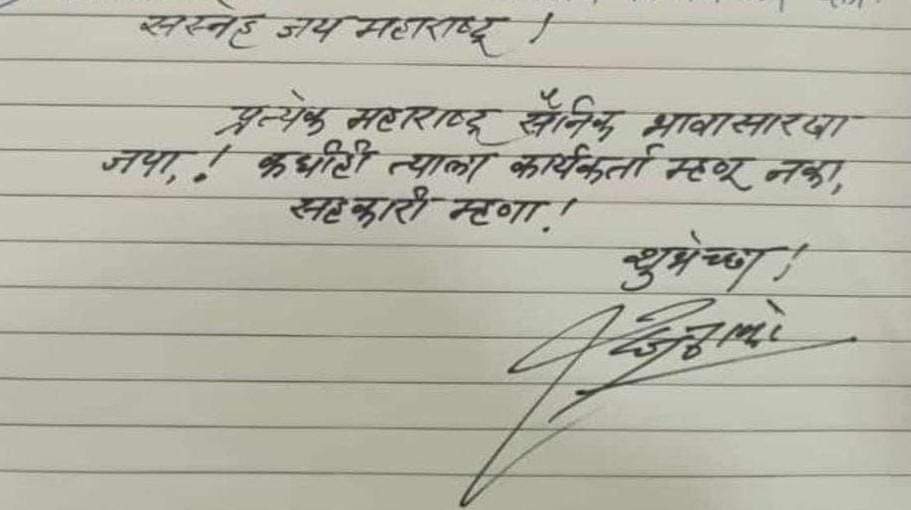 सस्नेह जय महाराष्ट्र !
प्रत्येक महाराष्ट्र सैनिक भावासारखा
जपा, ! कधीही त्याला कार्यकर्ता म्हणू नका,
सहकारी म्हणा !
शुभेच्छा !